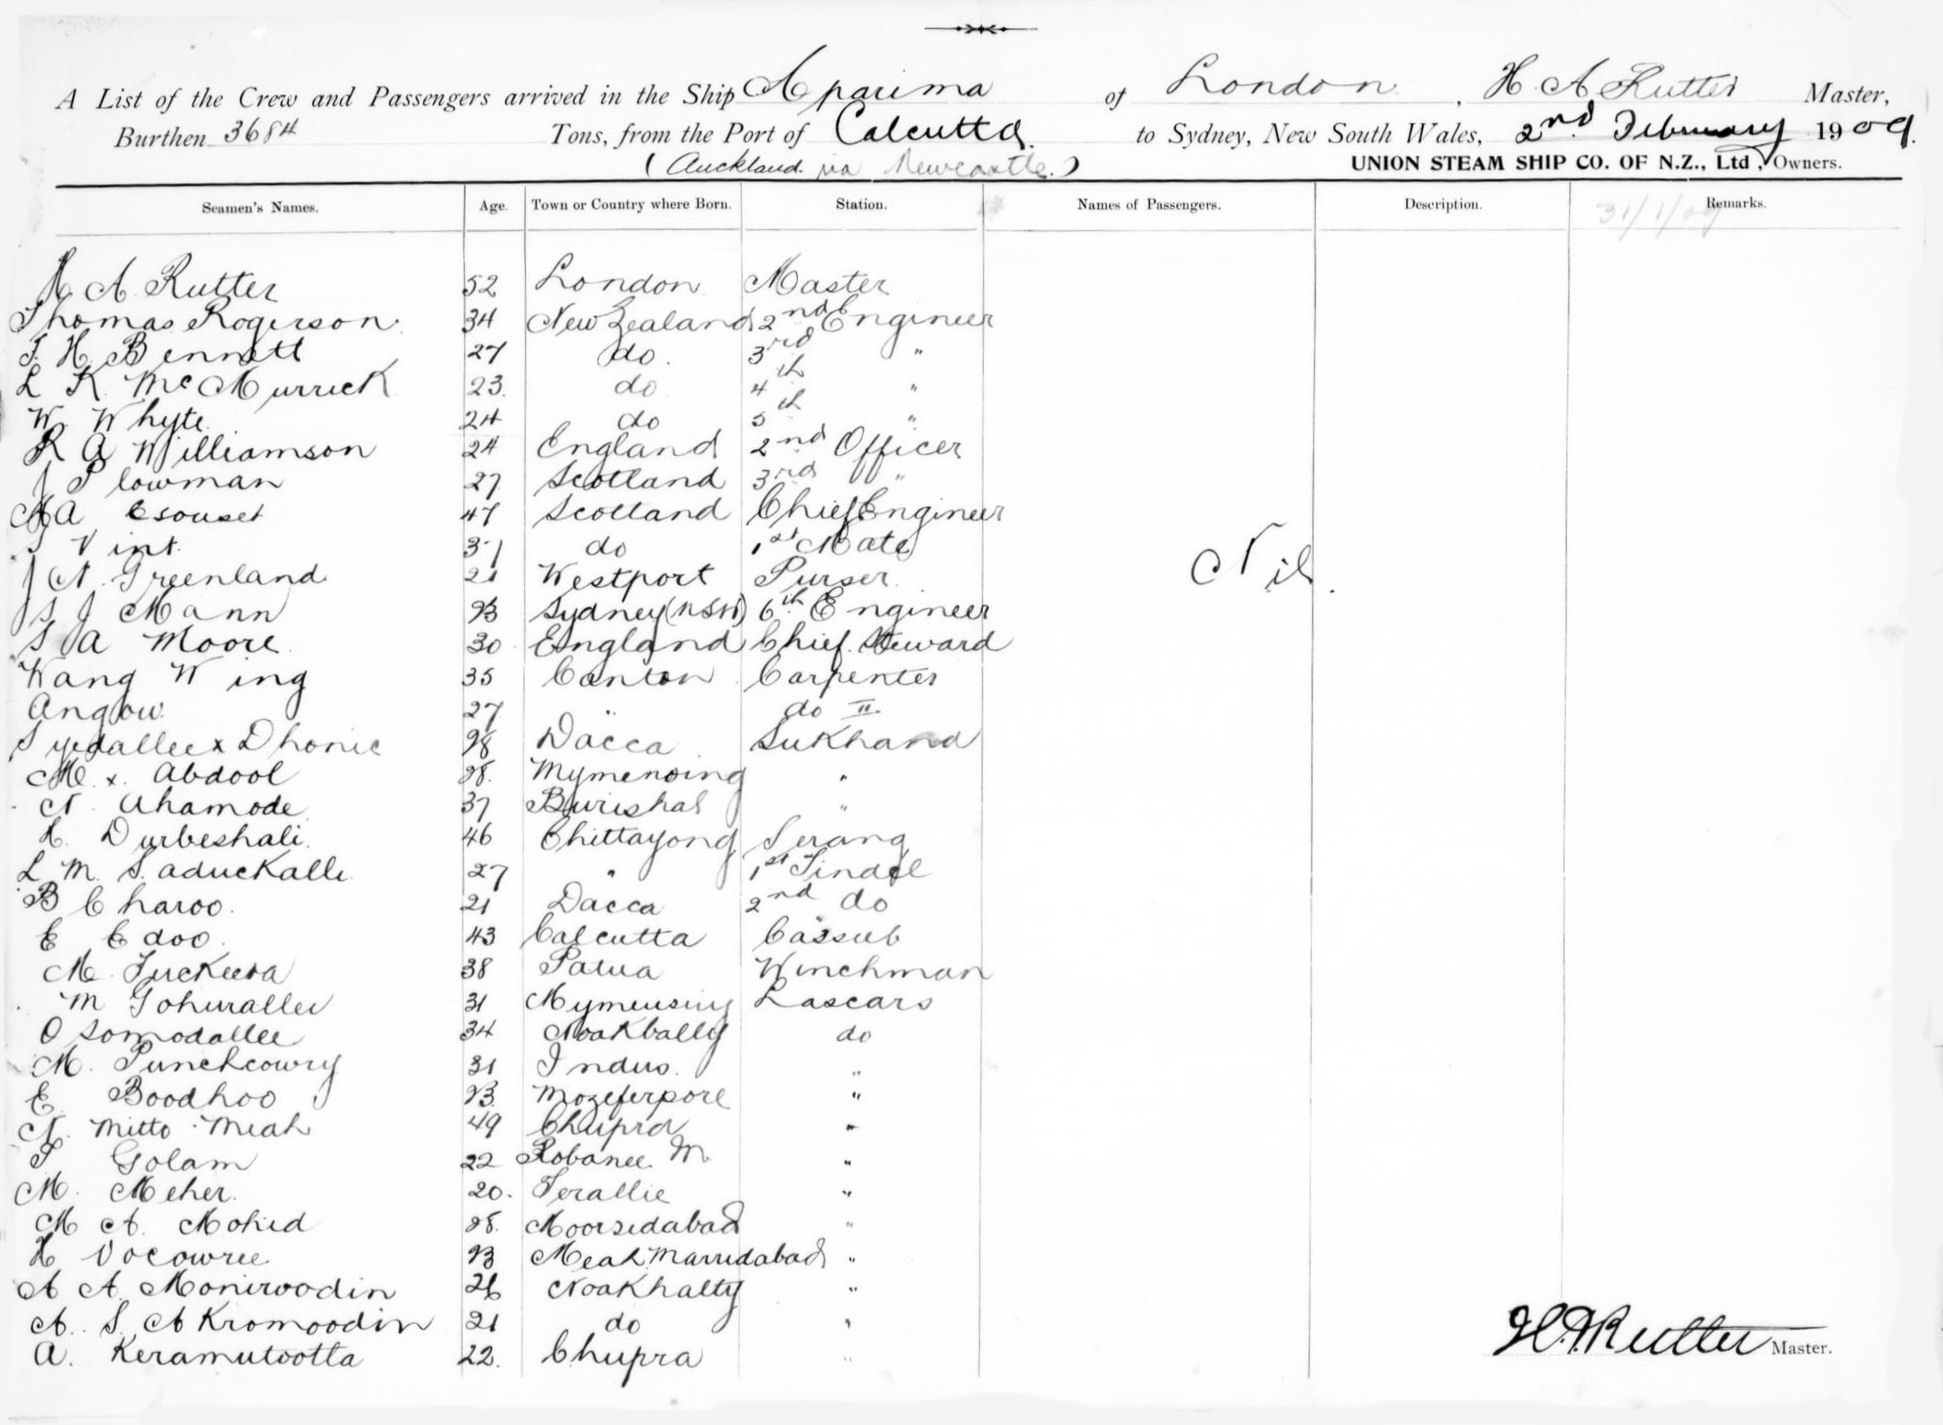 A List of the Crew and Passengers arrived in the Ship Aparima of London, H. A Rutter Master,
Burthen 3684 Tons, from the Port of Calcutta to Sydney, New South Wales, 2nd February 1909.
(Auckland via Newcastle.) UNION STEAM SHIP CO. OF N.Z., Ltd, Owners.
Seamen's Names. Age. Town or Country where Born. Station. Names of Passengers. Description. Remarks.
31/1/09
H A Rutter 52 London Master
Thomas Rogerson 34 New Zealand 2nd Engineer
T. H. Bennett 27 do. 3rd "
L K McMurrick 23. do 4th "
W. Whyte 24 do 5th "
R A Williamson 24 England 2nd Officer
J Plowman 27 Scotland 3rd "
A 47 Scotland Chief Engineer
Vint. 37 do 1st Mate
J N. Greenland 21 Westport Purser.
S J Mann 23 Sydney (NSW) 6th Engineer
S A Moore 30 England Chief Steward
Wang Wing 35 Canton Carpenter
Angow 27 " do II
Syedallee x Dhonie 28 Dacca Sukhand
M x. Abdool 28. Mymensing "
N. Ahamode 37 Burishal "
H. Durbeshali. 46 Chittagong Serang
L M. Saduckalle 27 " 1st Tindel
B Charoo. 21 Dacca 2nd do
E Edoo. 43 Calcutta Cassub
M. 38 Patua Winchman
M Gohurallee 31 Mymensing Lascars
O Somodallee 34 Noakhally do
M. Punchcowry 31 Indus. "
E. Boodhoo 23. Mozeferpore "
N. Mitto Meah 49 Chupra "
Golam 22 Robanee M. "
M. Meher. 20. Terallie "
M A. Mohid 28. Moorsedabad "
H Docowree 23 Meah Marridabad "
A A. Moniroodin 26 Noakhalty "
A. S. A Kromoodin 21 do "
A. Keramutootta 22. Chupra "
Nil.
H. A Rutter Master.